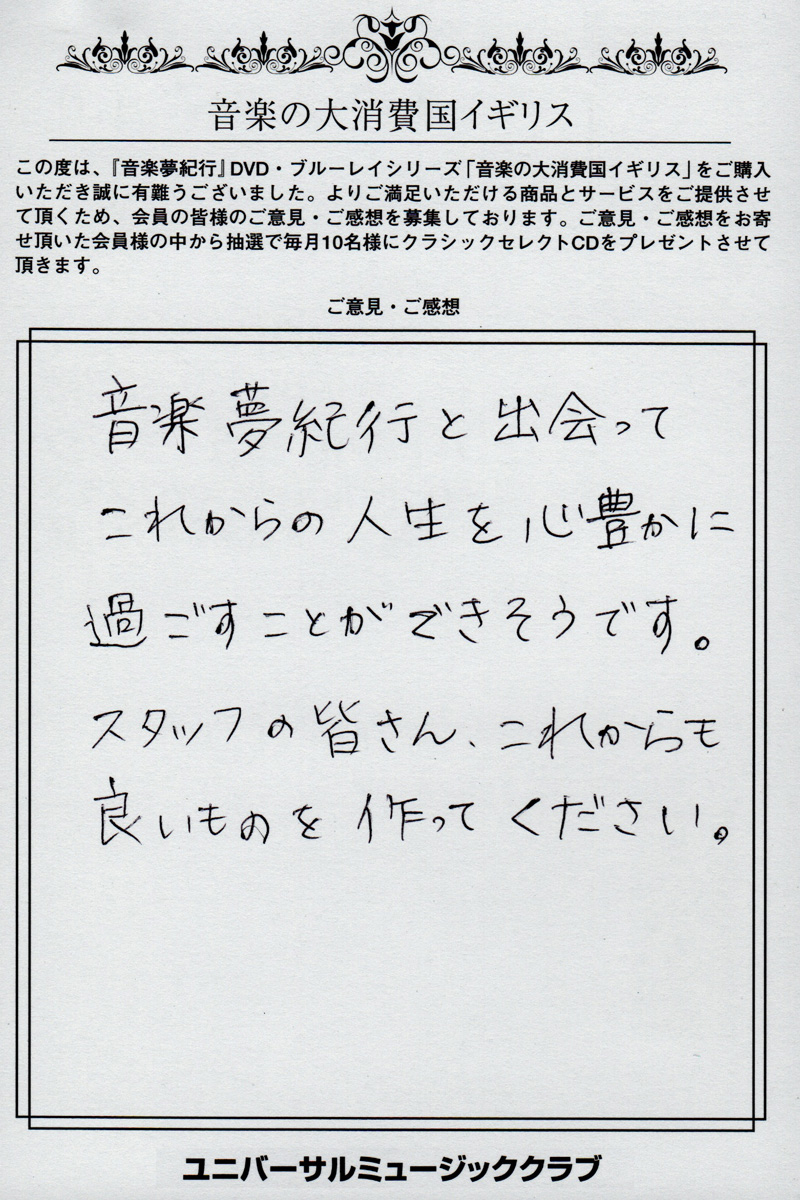 音楽の大消費国イギリス
この度は、『音楽夢紀行』DVD・ブルーレイシリーズ「音楽の大消費国イギリス」をご購入
いただき誠に有難うございました。よりご満足いただける商品とサービスをご提供させ
て頂くため、会員の皆様のご意見・ご感想を募集しております。ご意見・ご感想をお寄
せ頂いた会員様の中から抽選で毎月10名様にクラシックセレクトCDをプレゼントさせて
頂きます。
ご意見・ご感想
音楽夢紀行と出会って
これからの人生を心豊かに
過ごすことができそうです。
スタッフの皆さん、これからも
良いものを作ってください。
ユニバーサルミュージッククラブ